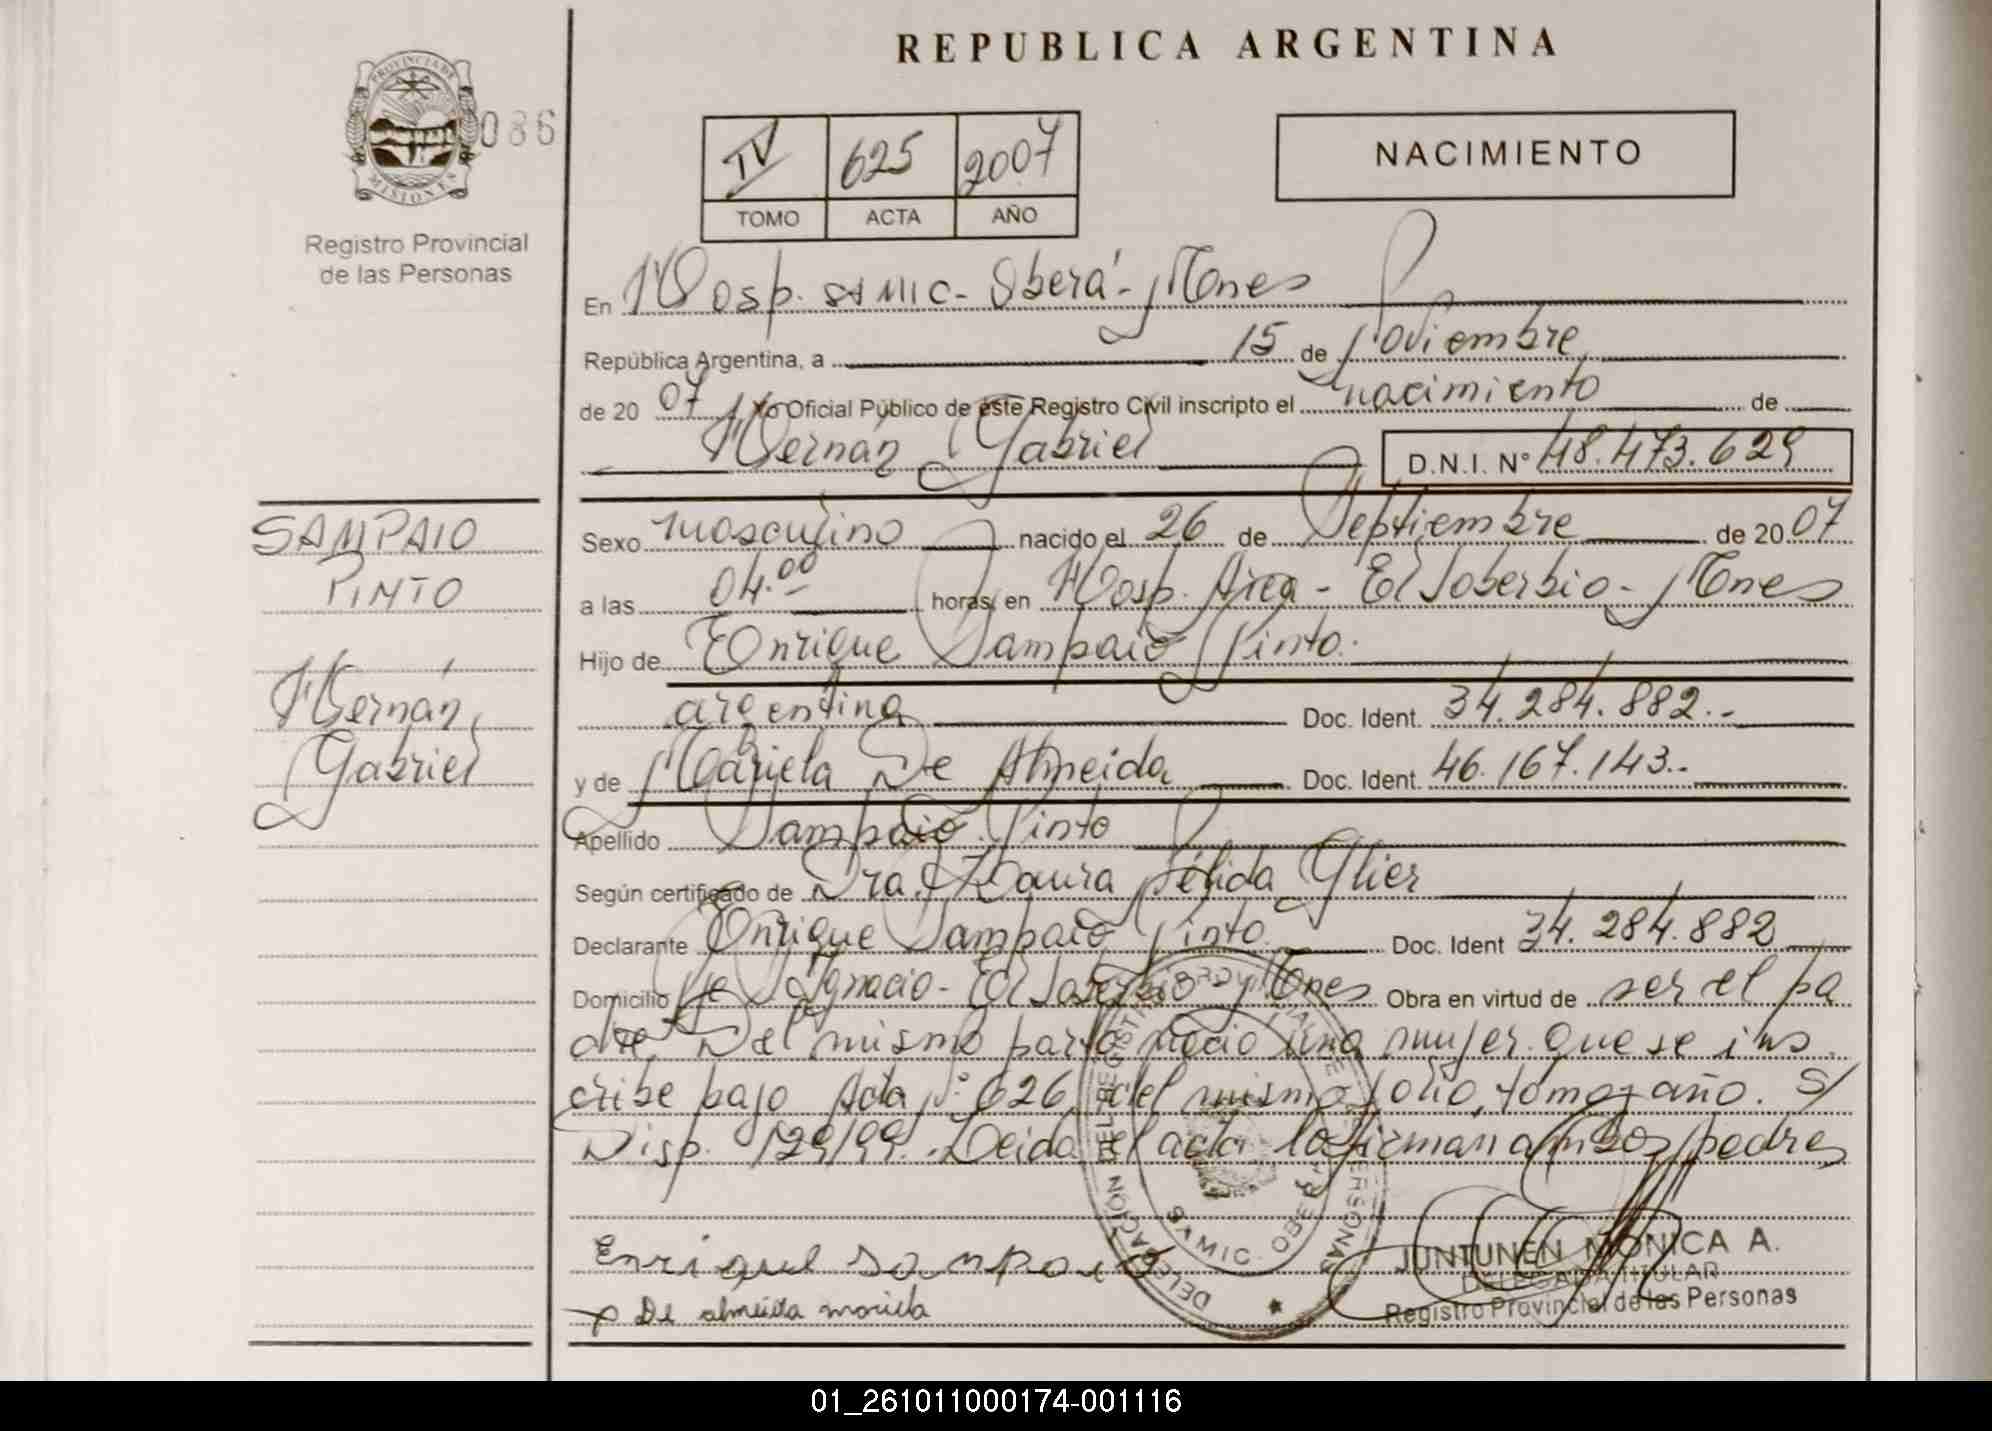 REPUBLICA ARGENTINA
PROVINCIA DE
MISIONES
086
Registro Provincial
de las Personas
IV 625 2007
TOMO ACTA AÑO
NACIMIENTO
En Hosp. SAMIC - Oberá - Mnes
República Argentina, a 15 de Noviembre
de 2007 Yo Oficial Público de este Registro Civil inscripto el nacimiento de
Hernán Gabriel D.N.I. Nº 48.473.629
SAMPAIO
PINTO
Hernán
Gabriel
Sexo masculino nacido el 26 de Septiembre de 2007
a las 04.00 horas, en Hosp. Area - El Soberbio - Mnes
Hijo de Enrique Sampaio Pinto.
argentina Doc. Ident. 34.284.882.-
y de Mariela De Almeida Doc. Ident. 46.167.143.-
Apellido Sampaio Pinto
Según certificado de Dra. Laura Nélida Glier
Declarante Enrique Sampaio Pinto Doc. Ident 34.284.882
Domicilio Ignacio - El Soberbio - Mnes Obra en virtud de ser el pa
dre. Del mismo parto nació una mujer que se ins
cribe bajo Acta Nº 626 del mismo folio, tomo y año. S/
Disp. 129/99. Leida el acta la firman ambos padres
Enrique Sampaio
De almeida mariela
SAMIC - OBERÁ
JUNTUNEN MONICA A.
DELEGADA TITULAR
Registro Provincial de las Personas
01_261011000174-001116